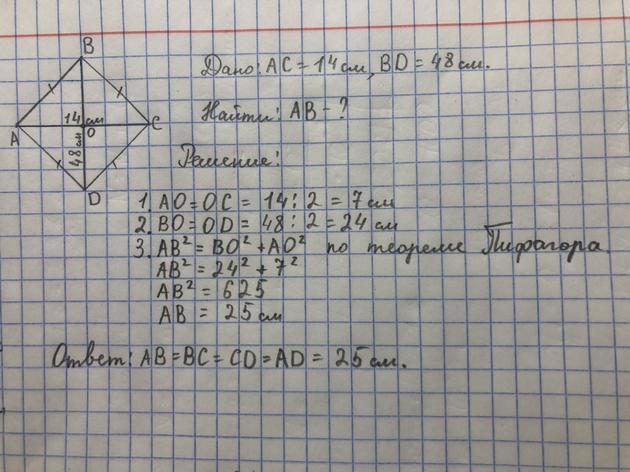 B
Дано: AC = 14 см, BD = 48 см.
14 см
A
O
C
Найти: AB - ?
48 см
D
Решение:
1. AO = OC = 14 : 2 = 7 см
2. BO = OD = 48 : 2 = 24 см
3. AB² = BO² + AO² по теореме Пифагора.
AB² = 24² + 7²
AB² = 625
AB = 25 см
Ответ: AB = BC = CD = AD = 25 см.